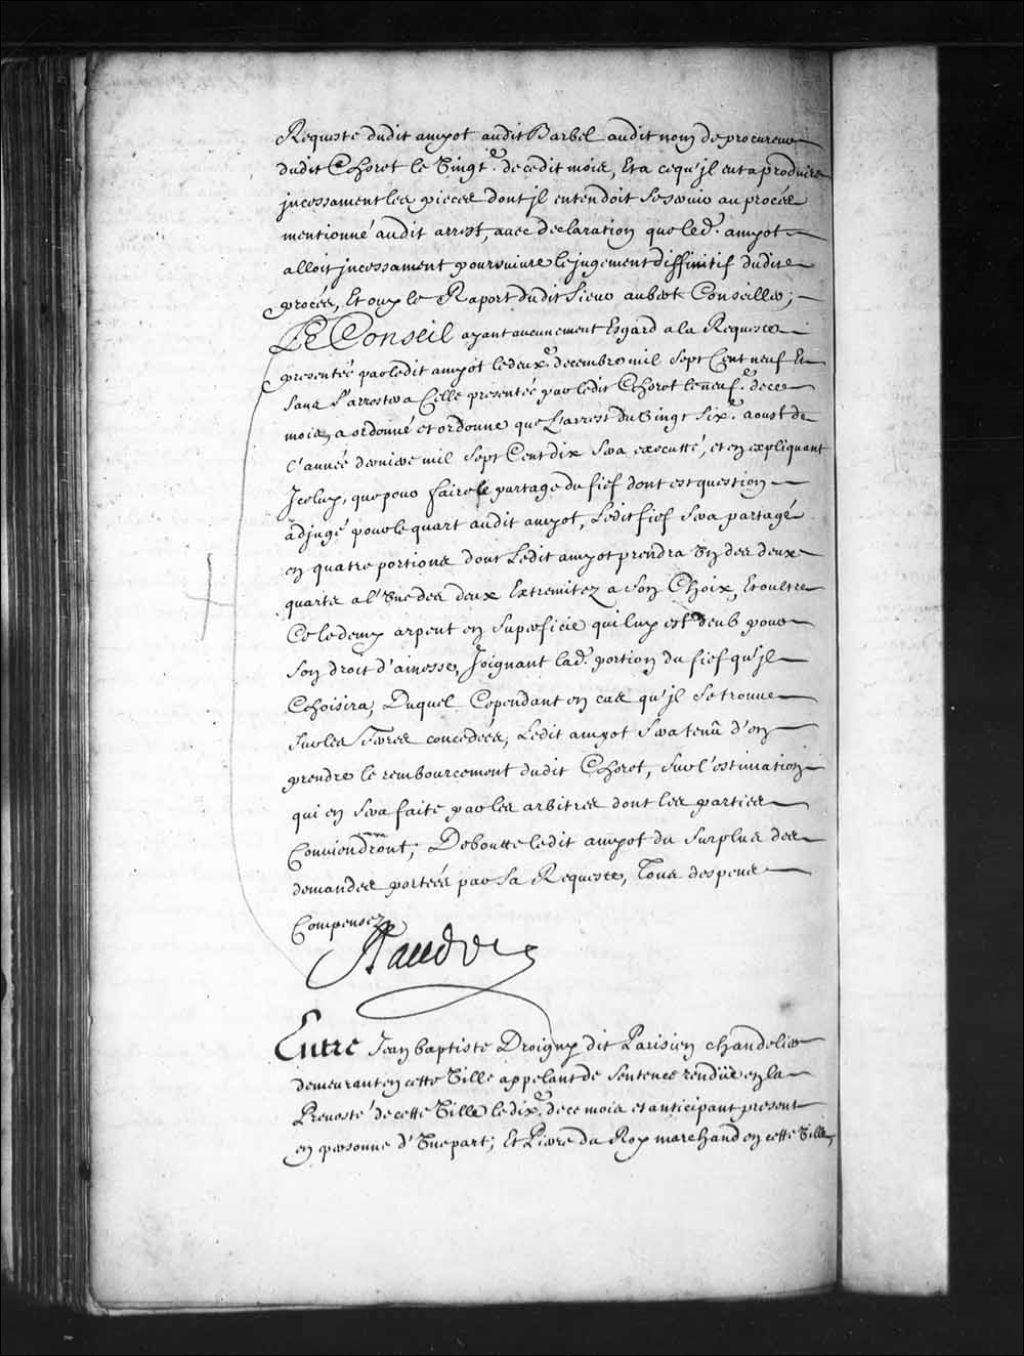 Requeste dudit amyot audit Barbel audit nom de procureur
dudit Choret le Vingt.e de cedit mois, Et a ce qu'jl eut a produire
jncessament les pieces dont jl entendoit se servir au procés
mentionné audit arrest, avec declaration que led. amyot
alloit jncessament poursuivre le jugement diffinitif dudit
procés, Et ouy le Raport dudit Sieur aubert Conseiller;
LE Conseil ayant aucunement Esgard a la Requeste
presentée par ledit amyot le deux.e decembre mil sept Cent neuf Et
sans s'arrester a Celle presentée par ledit Choret le neuf.e de ce
mois, a ordonné et ordonne que L'arrest du Vingt six.e aoust de
l'année derniere mil sept Cent dix sera executté, et en expliquant
Jceluy, que pour faire le partage du fief dont est question
adjugé pour le quart audit amyot, Ledit fief sera partagé
en quatre portions dont Ledit amyot prendra Un des deux
quarts a l'Une des deux Extremitez a son Choix, Et oultre
Ce le demy arpent en superficie qui luy est deub pour
son droit d'ainesse, Joignant lad. portion du fief qu'jl
Choisira, Duquel Cependant en cas qu'jl se trouve
sur les Terres concedées, Ledit amyot sera tenû d'en
prendre le remboursement dudit Choret, sur l'estimation
qui en sera faite par les arbitres dont les parties
Conviendront; Deboutte ledit amyot du surplus des
demandes portées par sa Requeste, Tous despens
Compensez
Vaudreuil
Entre Jean baptiste Droigny dit Parisien chandelier
demeurant en cette Ville appelant de sentence rendüe en la
Prevosté de cette Ville le dix.e de ce mois et anticipant present
en personne d'Une part; Et Pierre du Roy marchand en cette Ville,